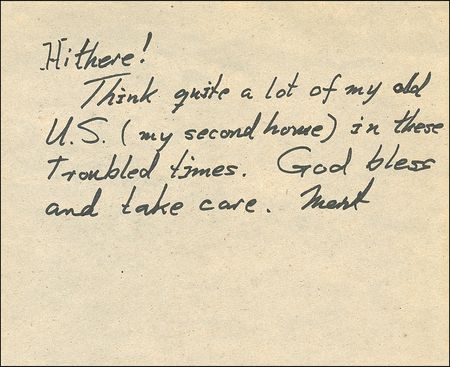 Hi there!
Think quite a lot of my old
U.S. (my second home) in these
Troubled times. God bless
and take care.